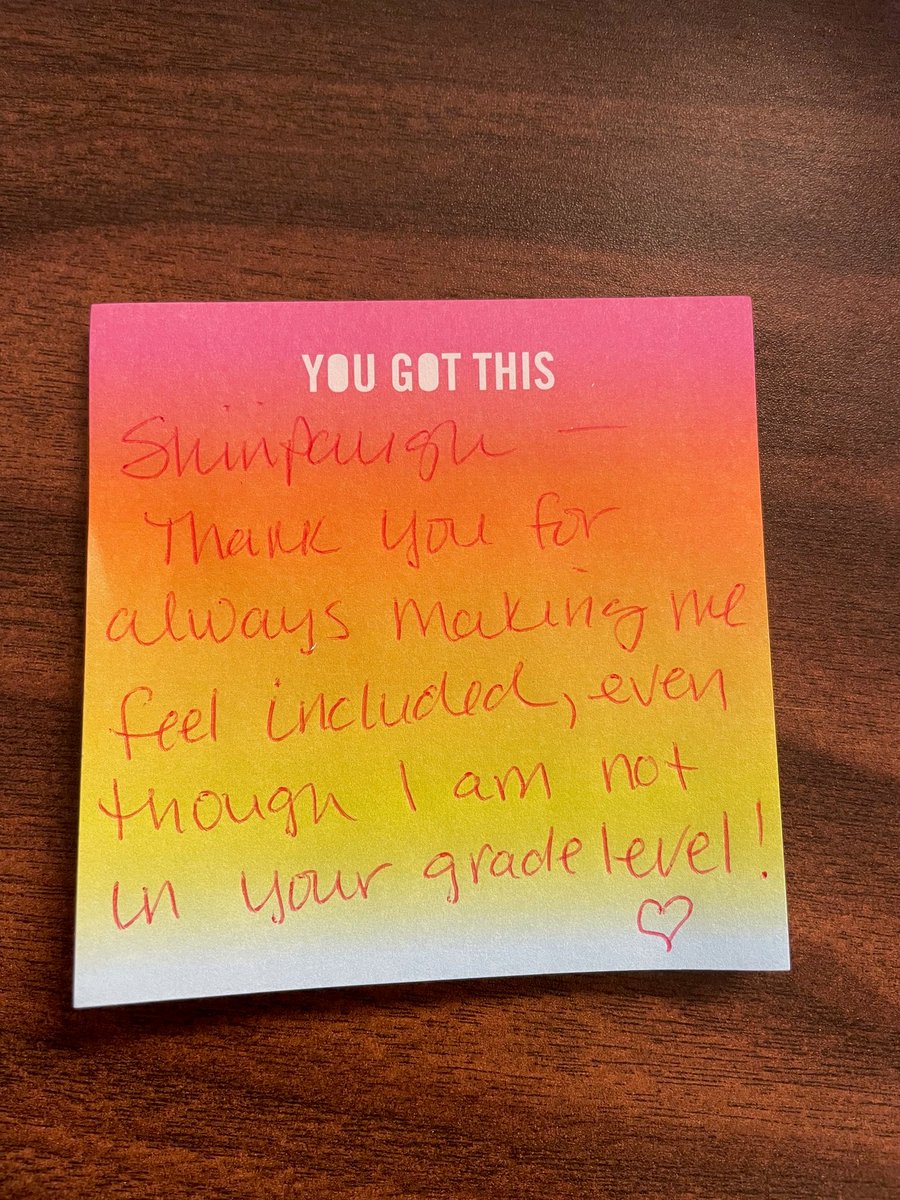 YOU GOT THIS
Shinpaugh —
Thank you for
always making me
feel included, even
though I am not
in your grade level!